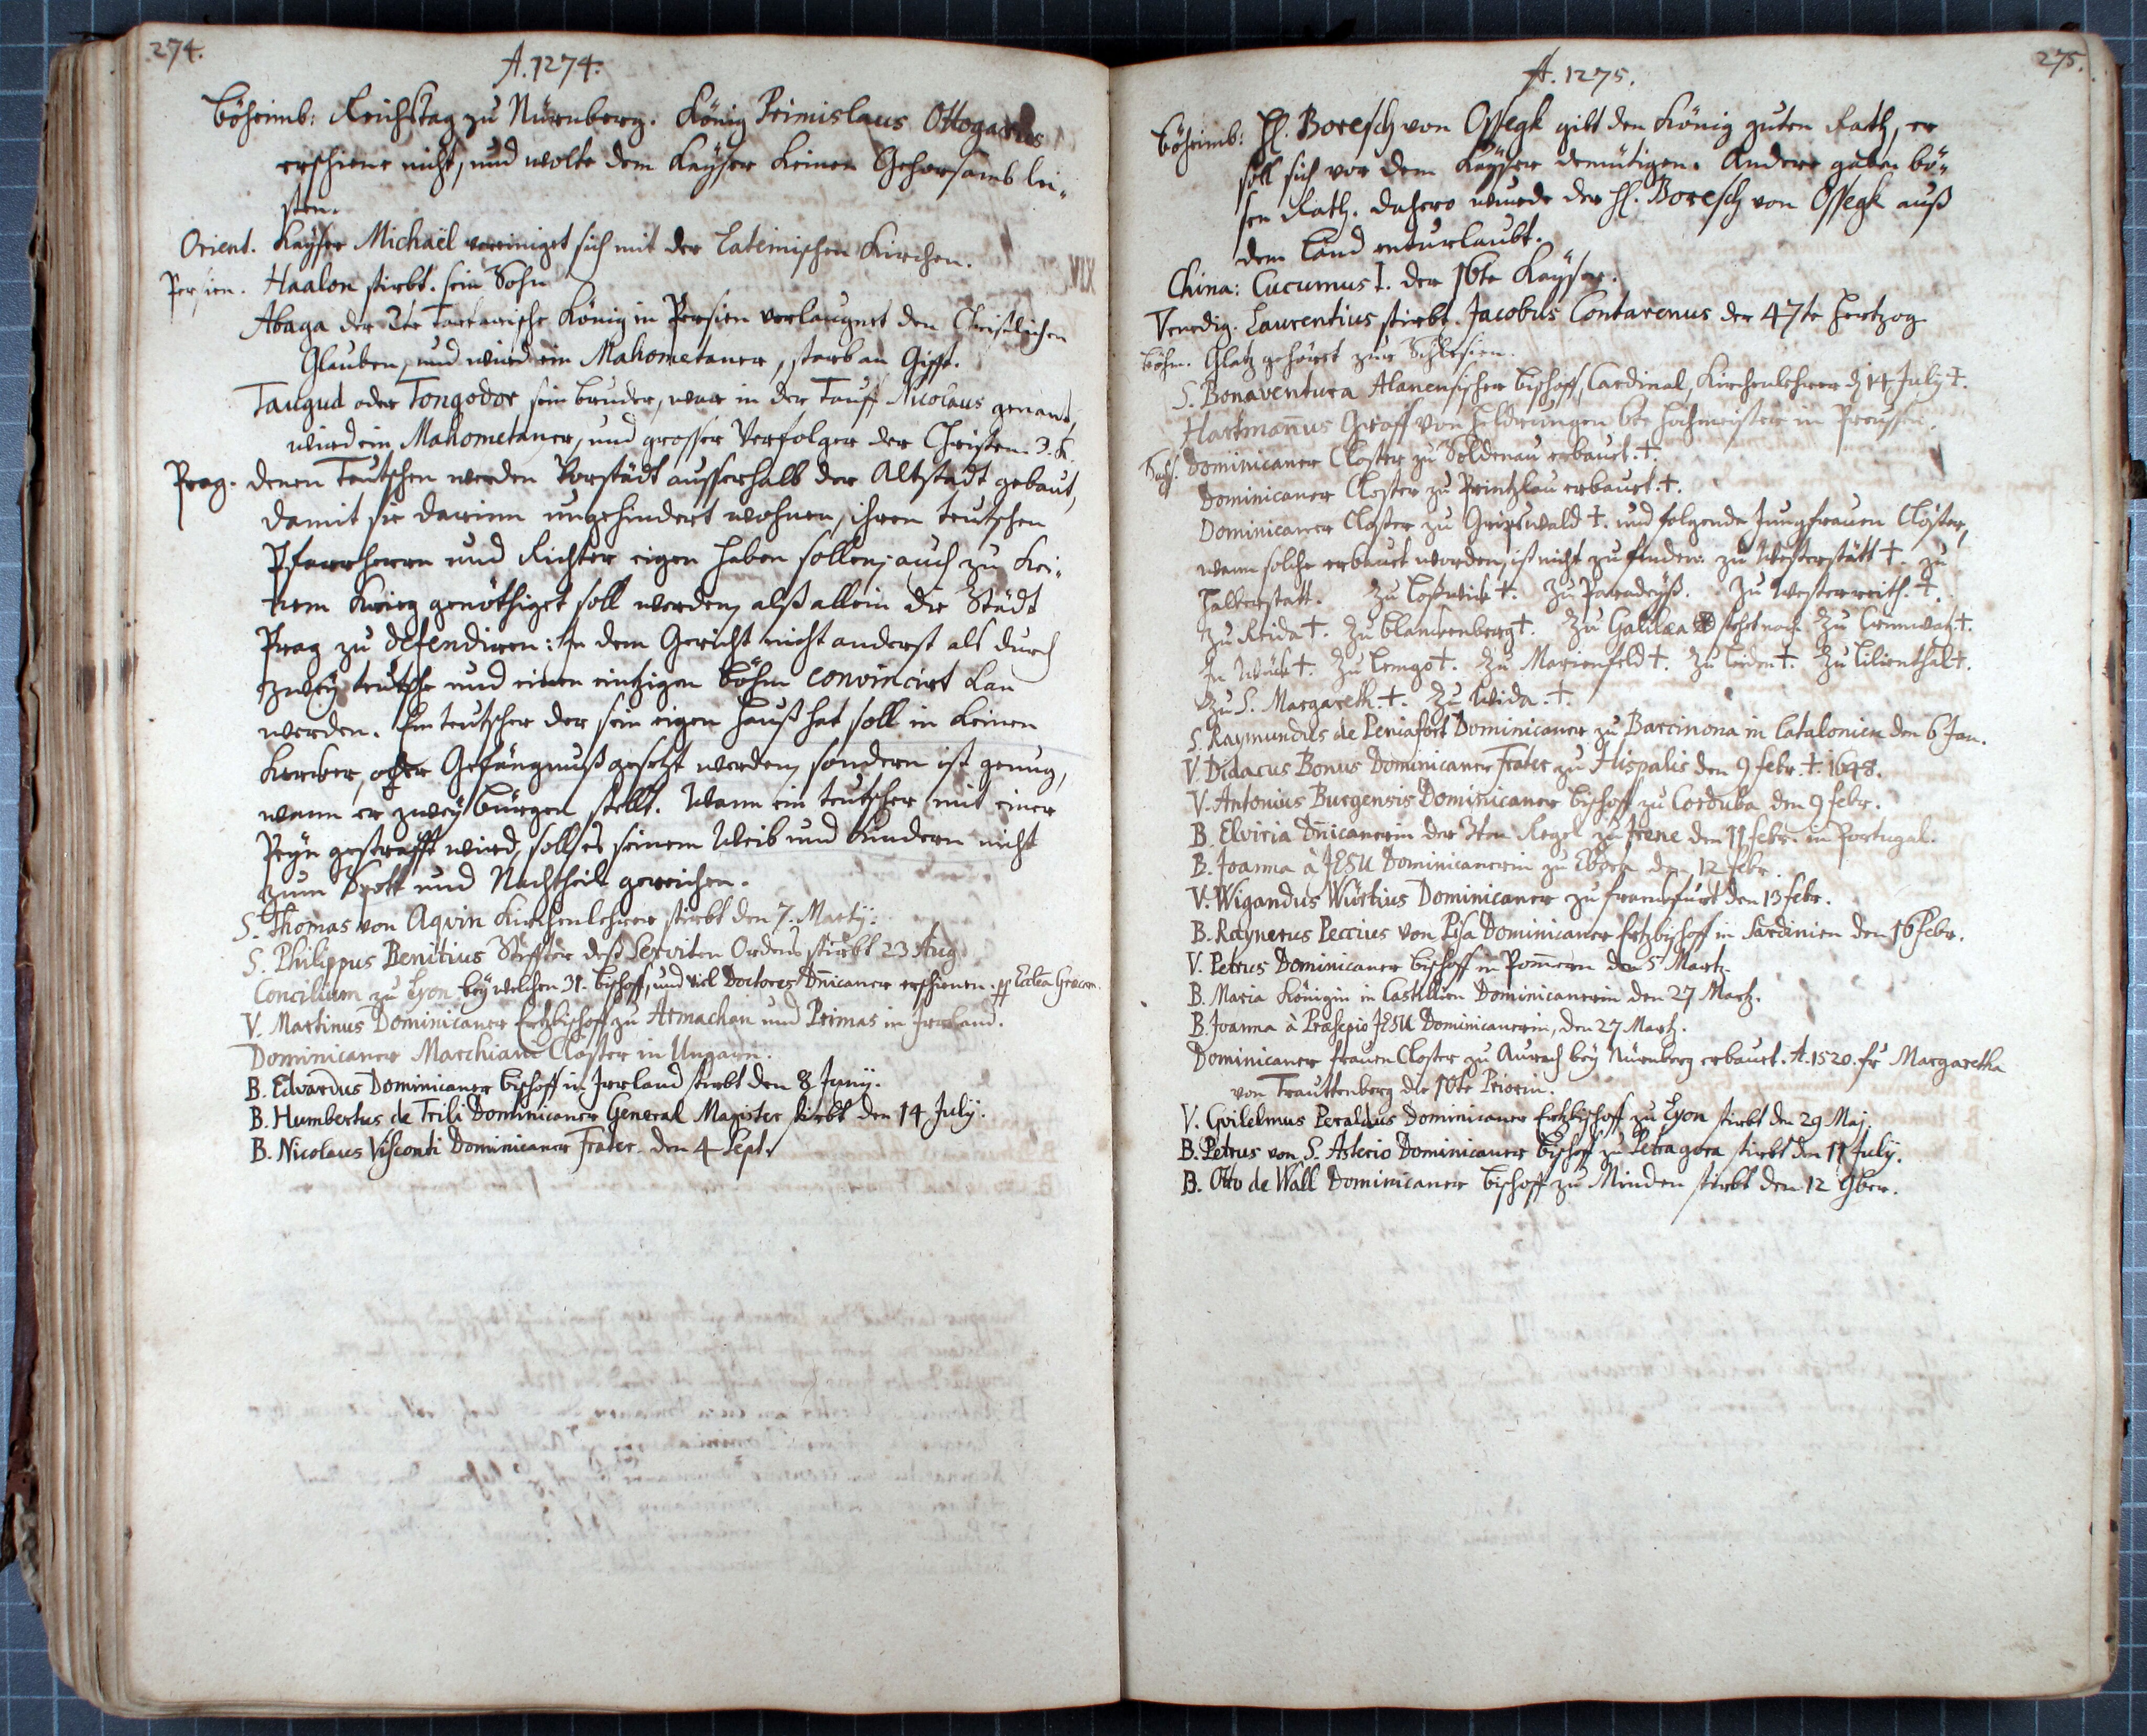 274.
A. 1274.
Böheimb: Reichstag zu Nürnberg. König Primislaus Ottogarus
erschiene nicht, und wolte dem Kayser keinen Gehorsamb lei-
sten.
Orient. Kayser Michaël vereiniget sich mit der Lateinischen Kirchen.
Persien. Haalon stirbt. sein Sohn
Abaga der 2te Tartarische König in Persien verlaugnet den Christlichen
Glauben, und wird ein Mahometaner, starb an Gifft.
Tangud oder Tongodor sein bruder, war in der Tauff Nicolaus genant,
wird ein Mahometaner, und grosser Verfolger der Christen. 3. K.
Prag. denen Teutschen werden Vorstädt ausserhalb der Altstadt gebaut,
damit sie darinn ungehindert wohnen, ihren teutschen
Pfarrherrn und Richter eigen haben sollen, auch zu kei-
nem Krieg genöthiget soll werden, alß allein die Städt
Prag zu defendiren: In dem Gericht nicht anderst als durch
zwey teutsche und einen eintzigen Böhm convincirt kan
werden. Ein teutscher der sein eigen Hauß hat soll in keinen
Kercker, oder Gefängnuß gesetzt werden, sondern ist genug,
wann er zwey bürgen stellt. Wann ein teutscher mit einer
Peyn gestrafft wird, soll es seinem Weib und Kindern nicht
zum Spott und Nachtheil gereichen.
S. Thomas von Aqvin Kirchenlehrer stirbt den 7. Martij.
S. Philippus Benitius Stiffter deß Serviten Ordens stirbt 23 Aug.
Concilium zu Lyon bey welchen 31. bischoff, und viel Doctores Dnicaner erschienen. pp Eccl͞a Græcor.
V. Martinus Dominicaner Ertzbischoff zu Armachan und Primas in Irrland.
Dominicaner Marchian Closter in Ungarn.
B. Edvardus Dominicaner bischoff in Irrland stirbt den 8 Junij.
B. Humbertus de Trili Dominicaner General Magister stirbt den 14 July.
B. Nicolaus Visconti Dominicaner Frater. den 4 Sept.
275.
A. 1275.
Böheimb: H. Boresch von Ossegk gibt den König guten Rath, er
soll sich vor dem Kayser demütigen. Andere gaben bö-
sen Rath. Dahero wurde der H. Boresch von Ossegk auß
dem Land enturlaubt.
China: Cucumus I. der 16te Kayser.
Venedig. Laurentius stirbt. Jacobus Contarenus der 47te Hertzog
Böhm. Glatz gehöret zur Schlesien.
S. Bonaventura Alanensischer bischoff, Cardinal, Kirchenlehrer d. 14 July †.
Hartmañus Graff von Heldrungen 6te Hochmeister in Preussen.
Dominicaner Closter zu Soldenau erbauet. †.
Dominicaner Closter zu Printzlau erbauet. †.
Dominicaner Closter zu Gripswald †. und folgende Jungfrauen Clöster,
wann solche erbauet worden, ist nicht zu finden: zu Westerstätt †. zu
Halberstatt. Zu Lostwick †. Zu Paradeyß. Zu Westerreith. †.
Zu Reida †. Zu blanckenberg †. Zu Galilæa stehet noch. Zu Cronwatz †.
In Wück †. Zu Lemgo †. Zu Marienfeld †. Zu Leiden †. Zu Lilienthal †.
Zu S. Margareth. †. Zu Wida. †.
S. Raymundus de Peniafort Dominicaner zu Barcinona in Catalonien den 6 Jan.
V. Didacus Bonus Dominicaner Frater zu Hispalis den 9 Febr. †. 1648.
V. Antonius Burgensis Dominicaner bischoff zu Corduba den 9 febr.
B. Elviria Dñicanerin der 3ten Regel zu Irene den 11 febr. in Portugal.
B. Joanna à JESU Dominicanerin zu Ebora den 12 febr.
V. Wigandus Würtius Dominicaner zu franckfurt den 13 febr.
B. Raynerus Peccius von Pisa Dominicaner Ertzbischoff in Sardinien den 16 Febr.
V. Petrus Dominicaner bischoff in Pom̄ern den 5 Martz.
B. Maria Königin in Castillien Dominicanerin den 27 Martz.
B. Joanna à Præsepio JESU Dominicanerin, den 27 Martz.
Dominicaner frauen Closter zu Aurach bey Nürnberg erbauet. A. 1520. fr Margaretha
von Trauttenberg die 10te Priorin.
V. Gvilelmus Peraldus Dominicaner Ertzbischoff zu Lyon stirbt den 29 Maj.
B. Petrus von S. Asterio Dominicaner bischoff zu Petragora stirbt den 11 July.
B. Otto de Wall Dominicaner bischoff zu Minden stirbt den 12 9ber.